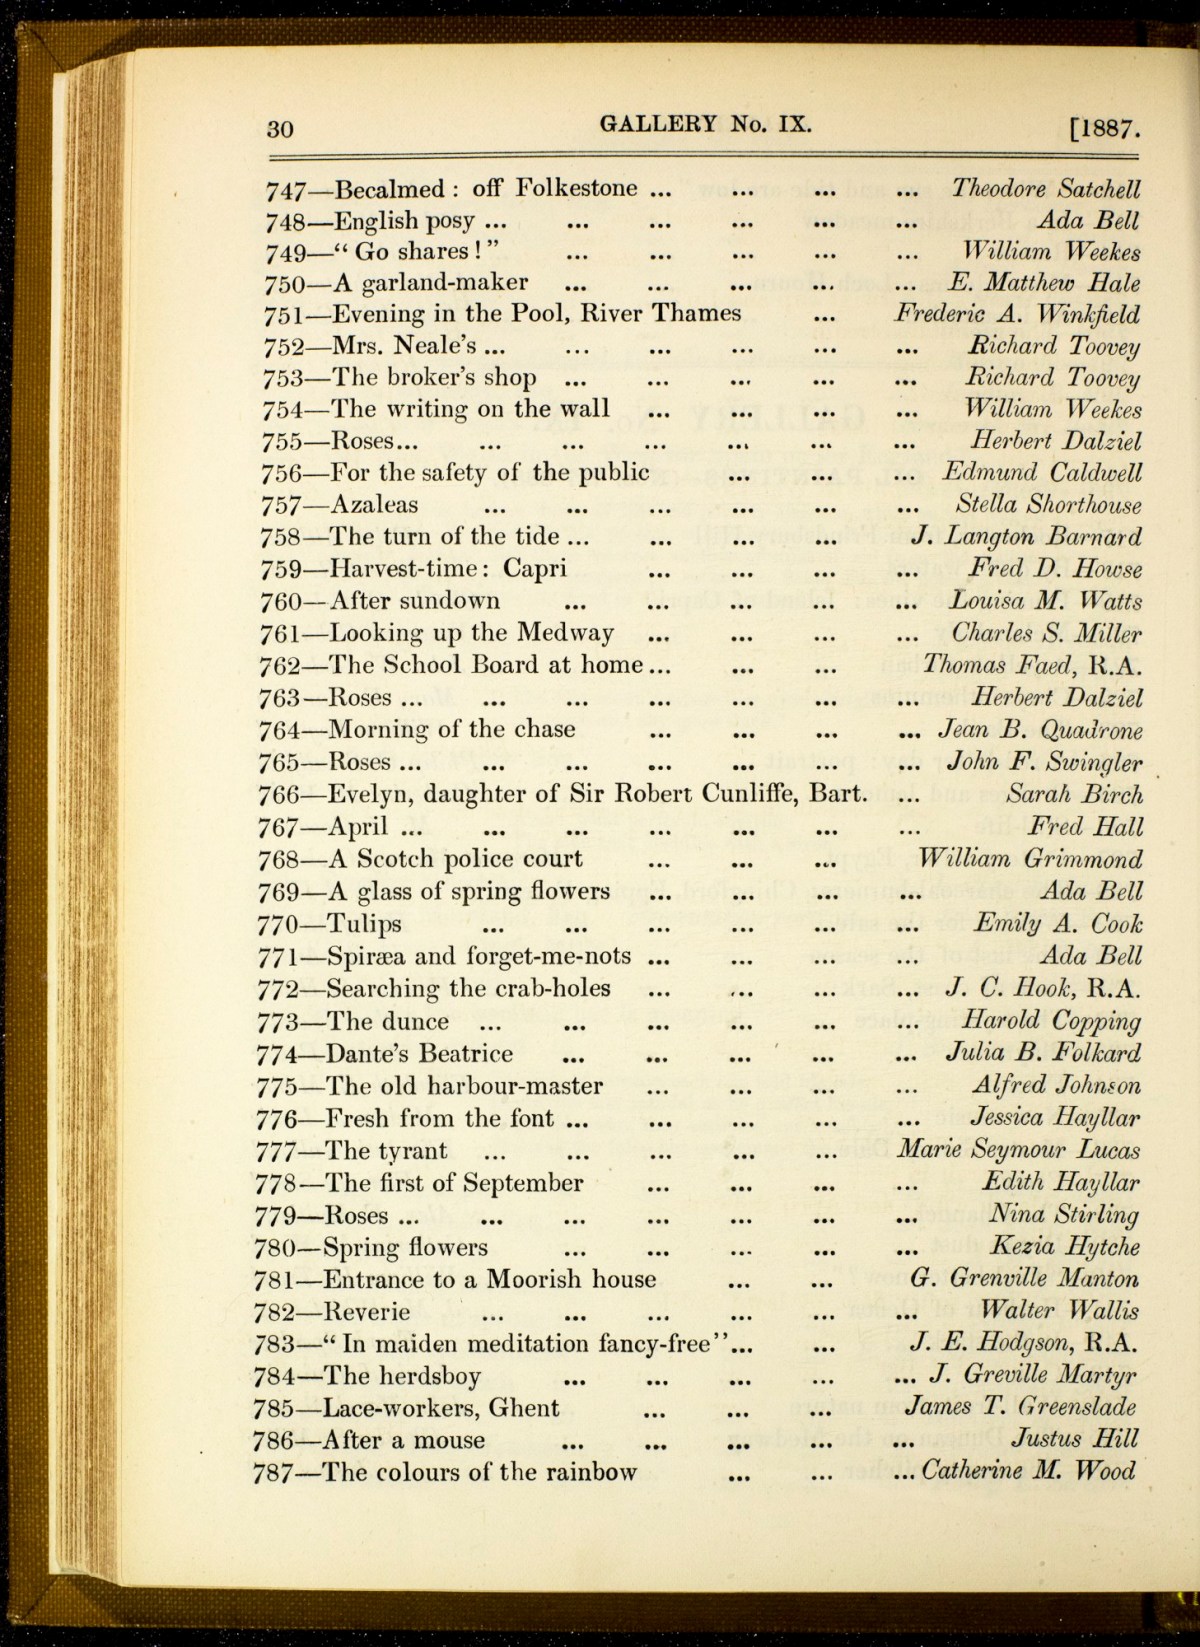 30 GALLERY No. IX. [1887.
747—Becalmed : off Folkestone ... ... ... ... Theodore Satchell
748—English posy ... ... ... ... ... ... Ada Bell
749—“ Go shares ! ” ... ... ... ... ... William Weekes
750—A garland-maker ... ... ... ... ... E. Matthew Hale
751—Evening in the Pool, River Thames ... Frederic A. Winkfield
752—Mrs. Neale’s ... ... ... ... ... ... Richard Toovey
753—The broker’s shop ... ... ... ... ... Richard Toovey
754—The writing on the wall ... ... ... ... William Weekes
755—Roses... ... ... ... ... ... ... Herbert Dalziel
756—For the safety of the public ... ... ... Edmund Caldwell
757—Azaleas ... ... ... ... ... ... Stella Shorthouse
758—The turn of the tide ... ... ... ... J. Langton Barnard
759—Harvest-time : Capri ... ... ... ... Fred D. Howse
760—After sundown ... ... ... ... ... Louisa M. Watts
761—Looking up the Medway ... ... ... ... Charles S. Miller
762—The School Board at home ... ... ... Thomas Faed, R.A.
763—Roses ... ... ... ... ... ... ... Herbert Dalziel
764—Morning of the chase ... ... ... ... Jean B. Quadrone
765—Roses ... ... ... ... ... ... ... John F. Swingler
766—Evelyn, daughter of Sir Robert Cunliffe, Bart. ... Sarah Birch
767—April ... ... ... ... ... ... ... Fred Hall
768—A Scotch police court ... ... ... William Grimmond
769—A glass of spring flowers ... ... ... ... Ada Bell
770—Tulips ... ... ... ... ... ... Emily A. Cook
771—Spiræa and forget-me-nots ... ... ... ... Ada Bell
772—Searching the crab-holes ... ... ... ... J. C. Hook, R.A.
773—The dunce ... ... ... ... ... ... Harold Copping
774—Dante’s Beatrice ... ... ... ... ... Julia B. Folkard
775—The old harbour-master ... ... ... ... Alfred Johnson
776—Fresh from the font ... ... ... ... ... Jessica Hayllar
777—The tyrant ... ... ... ... ... Marie Seymour Lucas
778—The first of September ... ... ... ... Edith Hayllar
779—Roses ... ... ... ... ... ... ... Nina Stirling
780—Spring flowers ... ... ... ... ... Kezia Hytche
781—Entrance to a Moorish house ... ... G. Grenville Manton
782—Reverie ... ... ... ... ... ... Walter Wallis
783—“ In maiden meditation fancy-free”... ... J. E. Hodgson, R.A.
784—The herdsboy ... ... ... ... ... J. Greville Martyr
785—Lace-workers, Ghent ... ... ... James T. Greenslade
786—After a mouse ... ... ... ... ... Justus Hill
787—The colours of the rainbow ... ... ... Catherine M. Wood